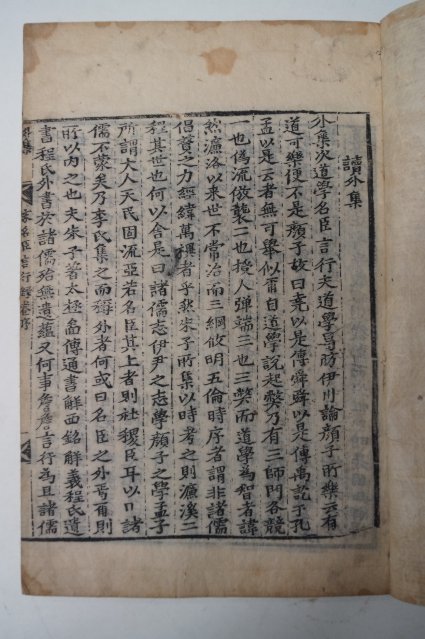 讀外集
外集次道學名臣言行夫道學曷昉伊川論顏子所樂云有
道可樂便不是顏子故曰堯以是傳舜舜以是傳禹訖于孔
孟以是云者無可舉似爾自道學說起弊乃有三師門各競
一也偽流倣襲二也授人彈端三也三弊而道學為智者諱
然濂洛以來世不常治而三綱攸明五倫時序者謂非諸儒
倡贊之力經緯萬興者乎然朱子所集以時考之則濂溪二
程其世也何以舍是曰諸儒志伊尹之志學顏子之學孟子
所謂大人天民固流亞若名臣其上者則社稷臣耳以口諸
儒不蒙矣乃李氏集之而稱外者何或曰名臣之外焉有則
所以內之也夫朱子著太極啚傳通書解西銘解義程氏遺
書程氏外書於諸儒殆無遺蘊又何事詹詹言行為且諸儒